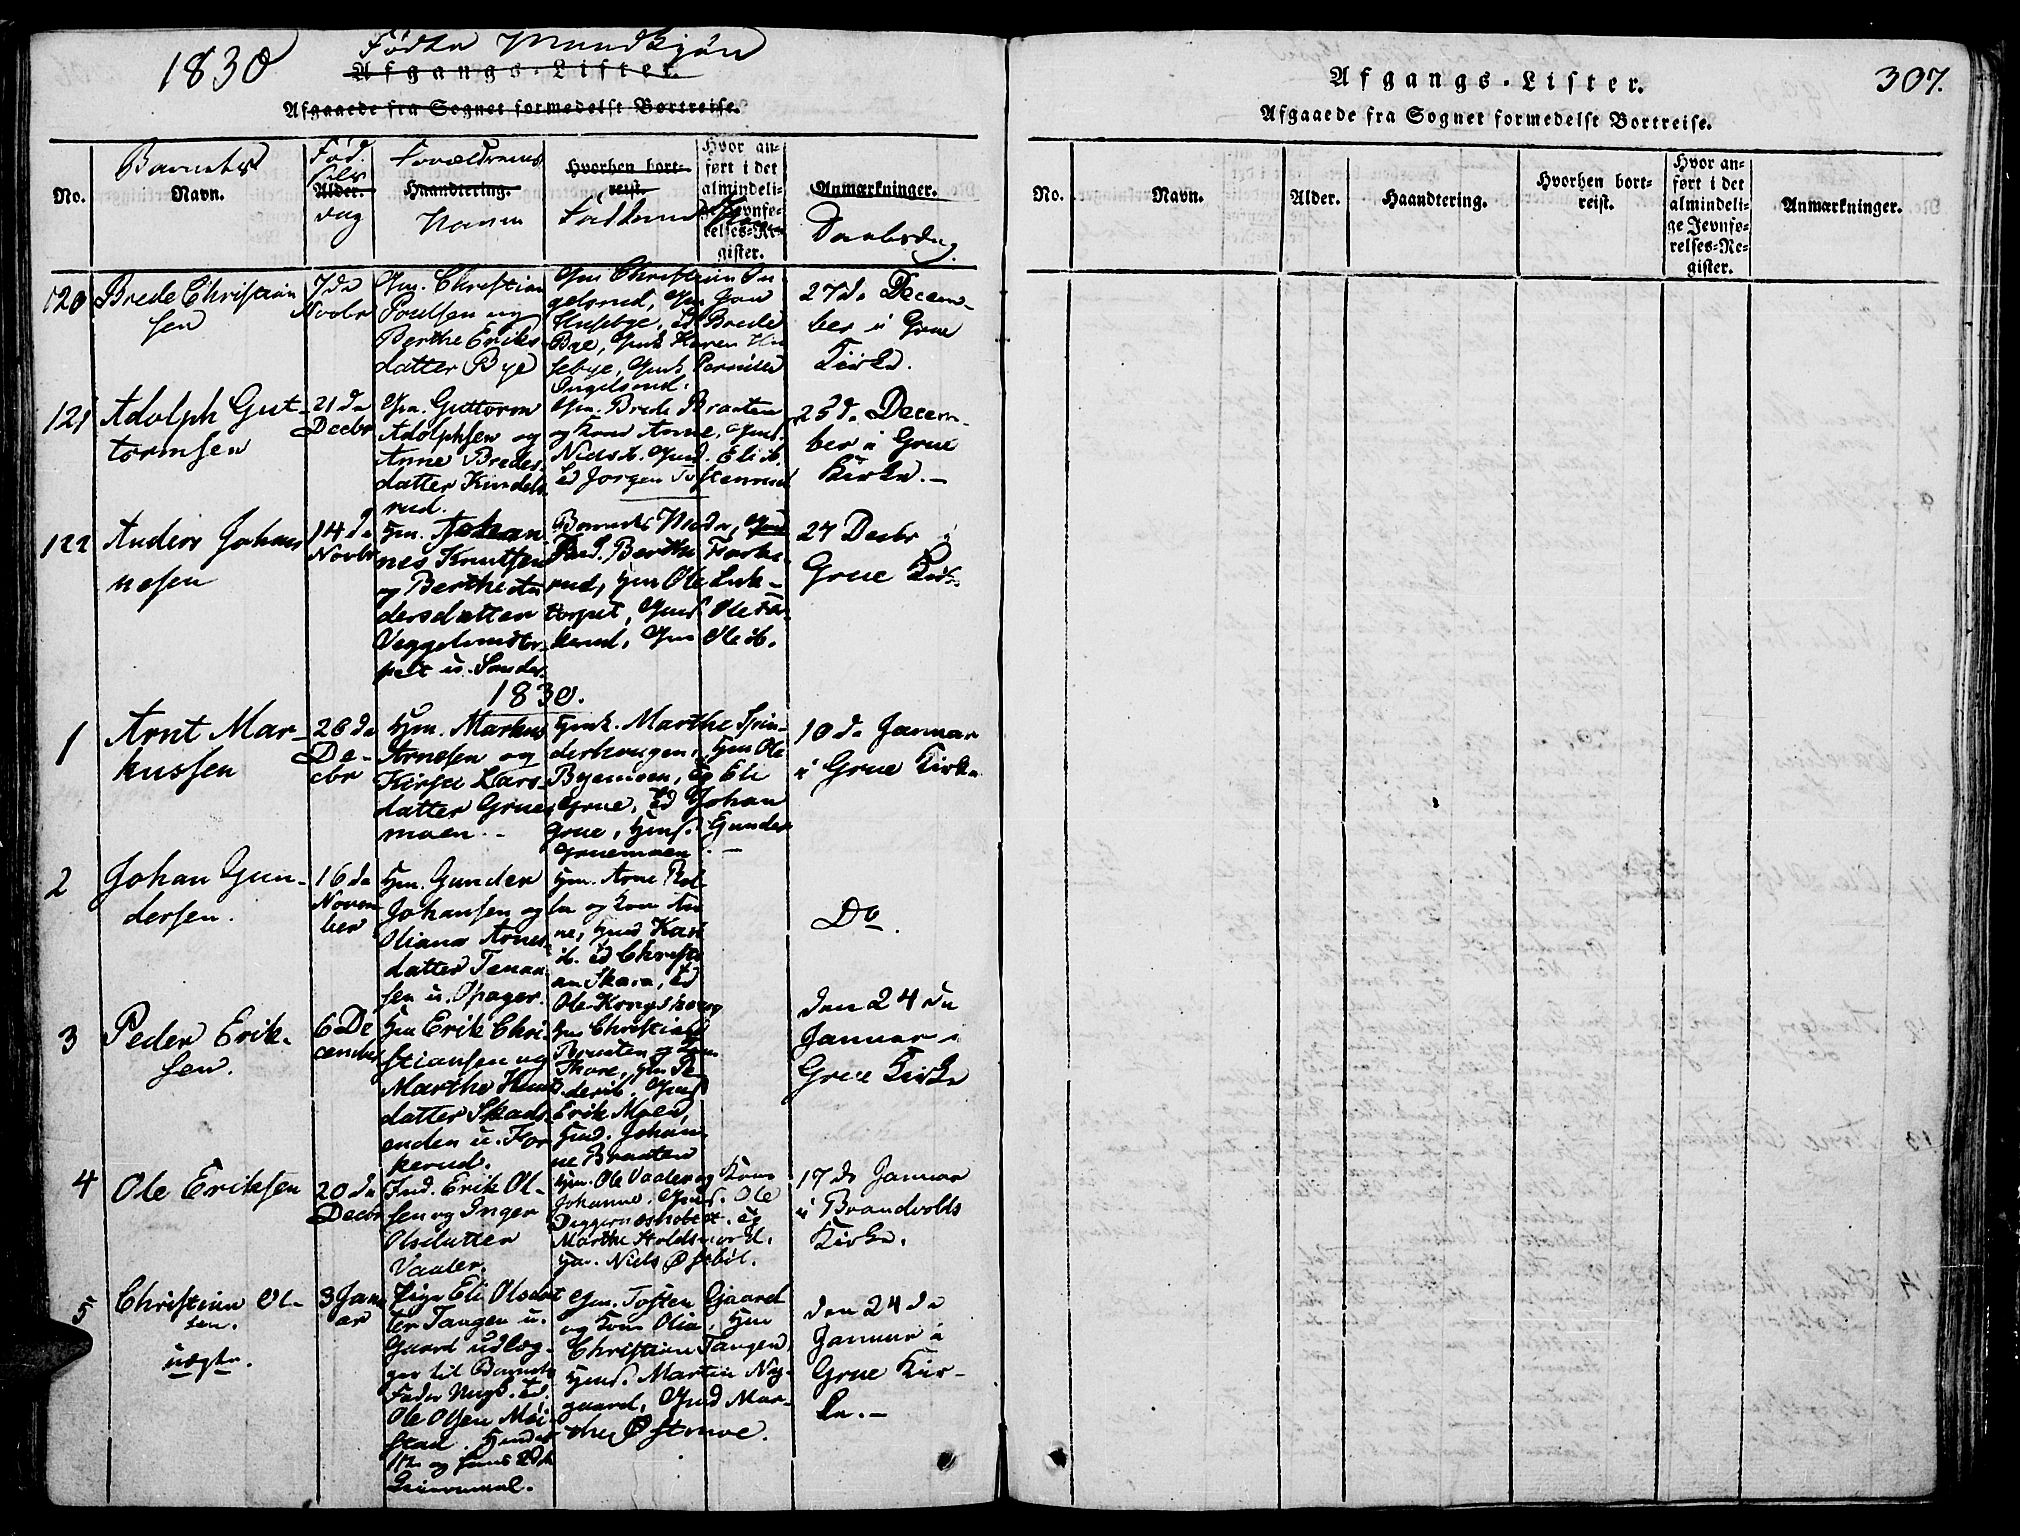 1830
Fødte Mandkjøn
Afgangs-Lister.
Afgaaede fra Sognet formedelst Bortreise.
No.
Barnets
Navn.
Fød-
sels
Alder.
dag
Forældrenes
Haandtering.
Navne
Hvorhen bort-
reist.
Faddernes
Hvor an-
ført i det
almindeli-
ge Jevnfø-
relses-Re-
gister.
Anmærkninger.
Daabsdag.
120
Brede Christian
sen
7de
Novbr
Gm. Christian
Poulsen og
Berthe Eriks-
datter Bye
Gm Christian On-
gelsrud, Gm Jon
Husebye, Ed Brede
Bye, Gmk Karen Hu
sebye, Gmk Pernille
Ongelsrud.
27de Decem-
ber i Grue
Kirke.
121
Adolph Gut-
tormsen
21de
Decbr
Gm. Guttorm
Adolphsen og
Anne Bredes-
datter Kindels-
rud.
Gm. Brede Braaten
og Kone Anne,
Eli ib.
Ed Jorgen Tostensrud
25de Decem-
ber i Grue
Kirke.-
122
Anders Johan
nesen
14de
Novbr
Hm. Johan-
nes Knutsen
og Berthe An
dersdatter
torpet u. Sander.
Barnets Moder,
Berthe
rud, Hm Ole
torpet, Ole
Gm Ole ib.
27 Decbr i
Grue Kirke
1830.
1
Arnt Mar-
kussen
26de
De-
cbr
Hm. Markus
Arnesen og
Kirsti Lars-
datter Grue-
moen.-
Hmk. Marthe Spin-
derhaugen, Hm Ole
Byemoen, Eli
Grue, Ed Johan
Grue, Gunder
Gruemoen
10de Januar
i Grue Kirke
2
Johan Gun-
dersen.
16de
Novem-
ber
Hm. Gunder
Johansen og
Oliana Arnes-
datter Tenaa-
sen u. Opager.
Hm. Arne
og Kone An
ne, Kari
ib. Ed Christi
an Skara, Ed
Ole Kongshoug
Do.
3
Peder Erik-
sen.
6 De
cember
Hm Erik Chri-
stiansen og
Marthe Knuds
datter Skads-
enden u. For
kerud.
Hm Christian
Braaten og Kone
Thore, Gm Pe
der ib,
Erik Moen,
Johan-
ne Braaten
den 24de
Januar i
Grue Kirke
4
Ole Eriksen
20de
Decbr
Ind. Erik Ol-
sen og Inger
Olsdatter
Vaaler.
Hm. Ole Vaaler og Kone
Johanne, Ole
Marthe
Gm. Niels Østbøl.
17de Januar
i Brandvolds
Kirke.
5
Christian Ol-
sen.
uægte.
3 Janu
ar
Pige Eli Olsdat
ter Tangen u.
Gaard udlæg-
ger til Barnets
Fader Ungk. Ed.
Ole Olsen Moi-
stad. Hendes
1te og hans 2det
Leiermaal.
Gm. Tosten Gaard
og Kone Olia, Hm
Christian Tangen,
Martin Ny-
gaard, Mar-
the Østmoe.
den 24de
Januar i
Grue Kir-
ke.-
307.
Afgangs-Lister.
Afgaaede fra Sognet formedelst Bortreise.
No.
Navn.
Alder.
Haandtering.
Hvorhen bort-
reist.
Hvor an-
ført i det
almindeli-
ge Jevnfø-
relses-Re-
gister.
Anmærkninger.